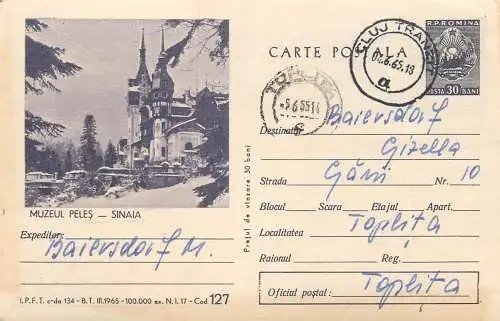 CARTE POȘTALA
R.P. ROMINA
POSTA 30 BANI
CLUJ TRANZIT
04.6.65.18
a
TOPLIȚA
-5.6.65 14
MUZEUL PELEȘ — SINAIA
Expeditor:
Baiersdorf M.
I.P.F.T. c-da 134 - B.T. III.1965 - 100.000 ex. N.I. 17 - Cod 127
Prețul de vînzare 30 bani
Destinatar Baiersdorf
Gizella
Strada Gării Nr. 10
Blocul Scara Etajul Apart.
Localitatea Toplița
Raionul Reg.
Oficiul poștal: Toplița